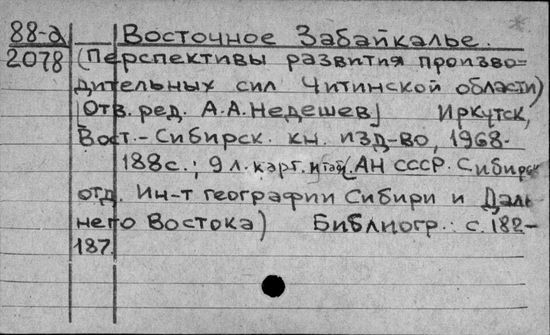 88-а Восточное Забайкалье.
2078 (Перспективы развития произво=
дительных сил Читинской области)
[Отв. ред. А.А.Недешев] Иркутск,
Вост.-Сибирск. кн. изд-во, 1968.
188с.; 9 л. карт. и табл. (АН СССР. Сибирск
отд. Ин-т географии Сибири и Даль
него Востока) Библиогр.: с. 182-
187.